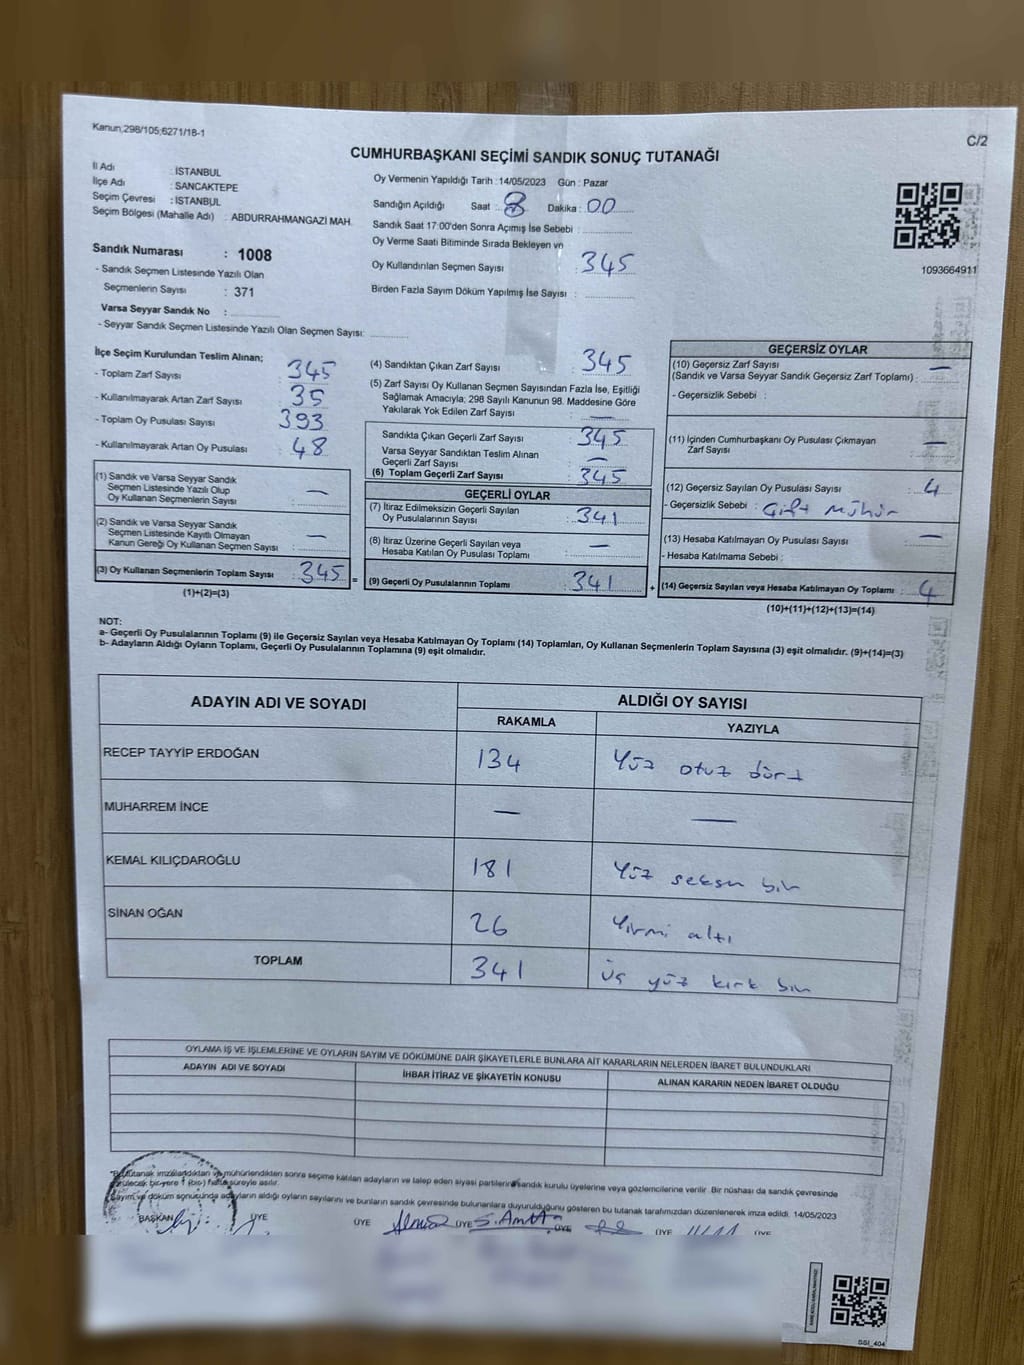 Kanun;298/105;6271/18-1
C/2
CUMHURBAŞKANI SEÇİMİ SANDIK SONUÇ TUTANAĞI
İl Adı : İSTANBUL
İlçe Adı : SANCAKTEPE
Seçim Çevresi : İSTANBUL
Seçim Bölgesi (Mahalle Adı) : ABDURRAHMANGAZİ MAH.
Sandık Numarası : 1008
- Sandık Seçmen Listesinde Yazılı Olan
Seçmenlerin Sayısı : 371
Varsa Seyyar Sandık No :
- Seyyar Sandık Seçmen Listesinde Yazılı Olan Seçmen Sayısı:
Oy Vermenin Yapıldığı Tarih : 14/05/2023 Gün : Pazar
Sandığın Açıldığı Saat : 8 Dakika : 00
Sandık Saat 17:00'den Sonra Açımış İse Sebebi :
Oy Verme Saati Bitiminde Sırada Bekleyen vn
Oy Kullandırılan Seçmen Sayısı : 345
Birden Fazla Sayım Döküm Yapılmış İse Sayısı :
1093664911
İlçe Seçim Kurulundan Teslim Alınan;
- Toplam Zarf Sayısı : 345
- Kullanılmayarak Artan Zarf Sayısı : 35
- Toplam Oy Pusulası Sayısı : 393
- Kullanılmayarak Artan Oy Pusulası : 48
(1) Sandık ve Varsa Seyyar Sandık
Seçmen Listesinde Yazılı Olup
Oy Kullanan Seçmenlerin Sayısı : —
(2) Sandık ve Varsa Seyyar Sandık
Seçmen Listesinde Kayıtlı Olmayan
Kanun Gereği Oy Kullanan Seçmen Sayısı : —
(3) Oy Kullanan Seçmenlerin Toplam Sayısı : 345 =
(1)+(2)=(3)
(4) Sandıktan Çıkan Zarf Sayısı : 345
(5) Zarf Sayısı Oy Kullanan Seçmen Sayısından Fazla İse, Eşitliği
Sağlamak Amacıyla; 298 Sayılı Kanunun 98. Maddesine Göre
Yakılarak Yok Edilen Zarf Sayısı : —
Sandıkta Çıkan Geçerli Zarf Sayısı : 345
Varsa Seyyar Sandıktan Teslim Alınan
Geçerli Zarf Sayısı : —
(6) Toplam Geçerli Zarf Sayısı : 345
GEÇERLİ OYLAR
(7) İtiraz Edilmeksizin Geçerli Sayılan
Oy Pusulalarının Sayısı : 341
(8) İtiraz Üzerine Geçerli Sayılan veya
Hesaba Katılan Oy Pusulası Toplamı : —
(9) Geçerli Oy Pusulalarının Toplamı : 341 +
GEÇERSİZ OYLAR
(10) Geçersiz Zarf Sayısı
(Sandık ve Varsa Seyyar Sandık Geçersiz Zarf Toplamı) : —
- Geçersizlik Sebebi :
(11) İçinden Cumhurbaşkanı Oy Pusulası Çıkmayan
Zarf Sayısı : —
(12) Geçersiz Sayılan Oy Pusulası Sayısı : 4
- Geçersizlik Sebebi : Çift Mühür
(13) Hesaba Katılmayan Oy Pusulası Sayısı : —
- Hesaba Katılmama Sebebi :
(14) Geçersiz Sayılan veya Hesaba Katılmayan Oy Toplamı : 4
(10)+(11)+(12)+(13)=(14)
NOT:
a- Geçerli Oy Pusulalarının Toplamı (9) ile Geçersiz Sayılan veya Hesaba Katılmayan Oy Toplamı (14) Toplamları, Oy Kullanan Seçmenlerin Toplam Sayısına (3) eşit olmalıdır. (9)+(14)=(3)
b- Adayların Aldığı Oyların Toplamı, Geçerli Oy Pusulalarının Toplamına (9) eşit olmalıdır.
ADAYIN ADI VE SOYADI ALDIĞI OY SAYISI
RAKAMLA YAZIYLA
RECEP TAYYİP ERDOĞAN 134 Yüz otuz dört
MUHARREM İNCE — —
KEMAL KILIÇDAROĞLU 181 Yüz seksen bir
SİNAN OĞAN 26 Yirmi altı
TOPLAM 341 Üç yüz kırk bir
OYLAMA İŞ VE İŞLEMLERİNE VE OYLARIN SAYIM VE DÖKÜMÜNE DAİR ŞİKAYETLERLE BUNLARA AİT KARARLARIN NELERDEN İBARET BULUNDUKLARI
ADAYIN ADI VE SOYADI İHBAR İTİRAZ VE ŞİKAYETİN KONUSU ALINAN KARARIN NEDEN İBARET OLDUĞU
tutanak imzalandıktan ve mühürlendikten sonra seçime katılan adayların ve talep eden siyasi partilerin sandık kurulu üyelerine veya gözlemcilerine verilir. Bir nüshası da sandık çevresinde
bir yere 1 (bir) hafta süreyle asılır.
Sayım ve döküm sonucunda adayların aldığı oyların sayılarını ve bunların sandık çevresinde bulunanlara duyurulduğunu gösteren bu tutanak tarafımızdan düzenlenerek imza edildi. 14/05/2023
BAŞKAN ÜYE ÜYE ÜYE ÜYE ÜYE ÜYE
SSI_404